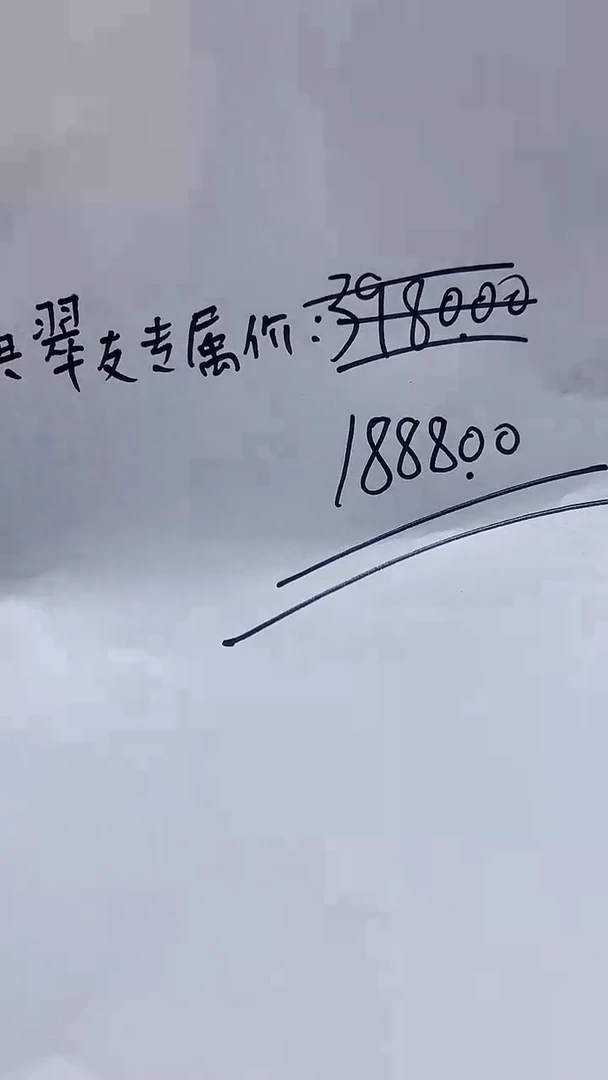 翠友专属价:3980.00
1888.00